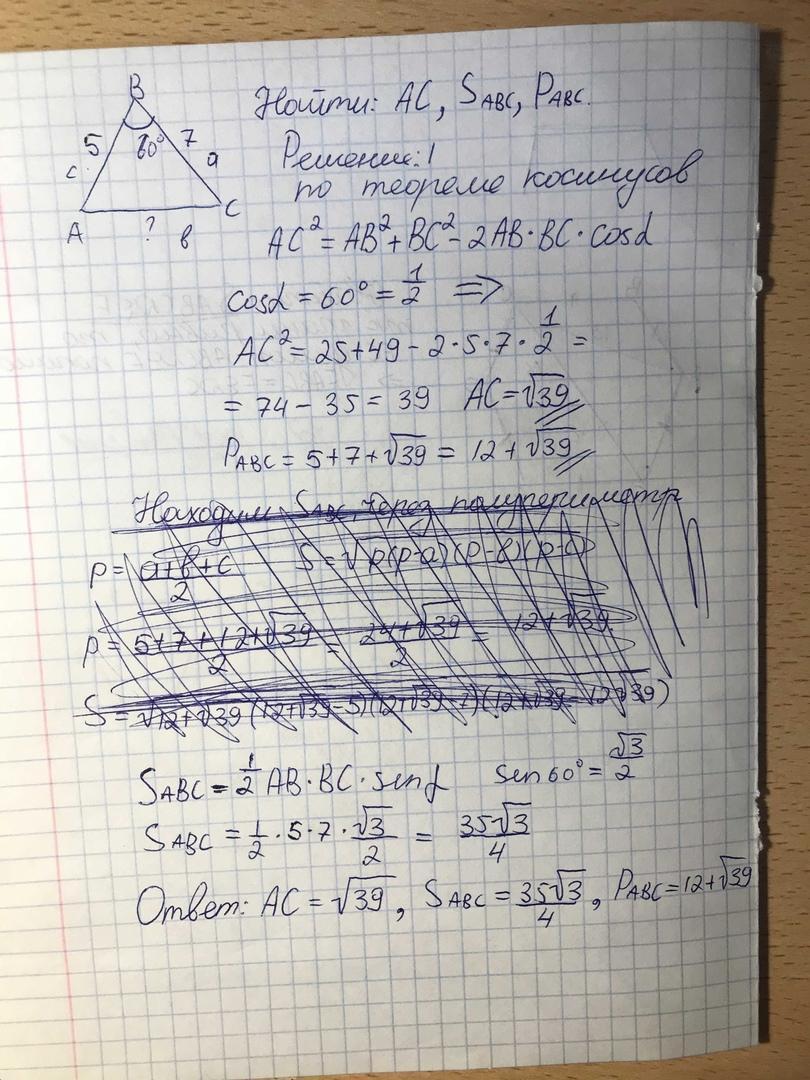 B
5
60°
7
c
a
A
?
в
C
Найти: AC, SABC, PABC.
Решение:1
по теореме косинусов
AC² = AB² + BC² - 2AB·BC·cosα
cosα = 60° = 1/2 =>
AC² = 25 + 49 - 2·5·7·1/2 =
= 74 - 35 = 39 AC = √39
PABC = 5 + 7 + √39 = 12 + √39
Находим SABC через полупериметр
p = a+в+c/2 S = √p(p-a)(p-в)(p-c)
p = 5+7+12+√39/2 = 24+√39/2 = 12+√39
SABC = 1/2 AB·BC·sin sen60° = √3/2
SABC = 1/2·5·7·√3/2 = 35√3/4
Ответ: AC = √39, SABC = 35√3/4, PABC = 12+√39